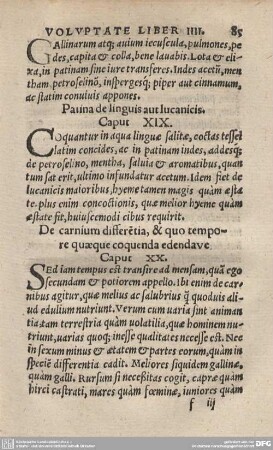 VOLVPTATE LIBER IIII. 85
GAllinarum atq; auium iecuscula, pulmones, pe
des, capita & colla, bene lauabis. Lota & eli
xa, in patinam sine iure transferes. Indes acetū, men
tham petroselinū, inspergesq; piper aut cinnamum,
ac statim conuiuis appones.
Patina de linguis aut lucanicis.
Caput XIX.
COquantur in aqua linguæ salitæ, coctas tessel
latim concides, ac in patinam indes, addesq;
de petroselino, mentha, saluia & aromatibus, quan
tum sat erit, ultimo infundatur acetum. Idem fiet de
lucanicis maioribus, hyeme tamen magis quàm æsta
te. plus enim concoctionis, quæ melior hyeme quàm
æstate fit, huiuscemodi cibus requirit.
De carnium differētia, & quo tempo
re quæque coquenda edendaue
Caput XX.
SEd iam tempus est transire ad mensam, quā ego
secundam & potiorem appello. Ibi enim de car
nibus agitur, quæ melius ac salubrius q̃ quoduis ali
ud edulium nutriunt. Verum cum uaria sint animan
tia tam terrestria quàm uolatilia, quæ hominem nu
triunt, uarias quoq; inesse qualitates necesse est. Nec
in sexum minus & ætatem & partes eorum, quàm in
speciē differentia cadit. Meliores siquidem gallinæ,
quàm galli. Rursum si necessitas cogit, capræ quàm
hirci castrati, mares quàm fœminæ, iuniores quàm
f iij